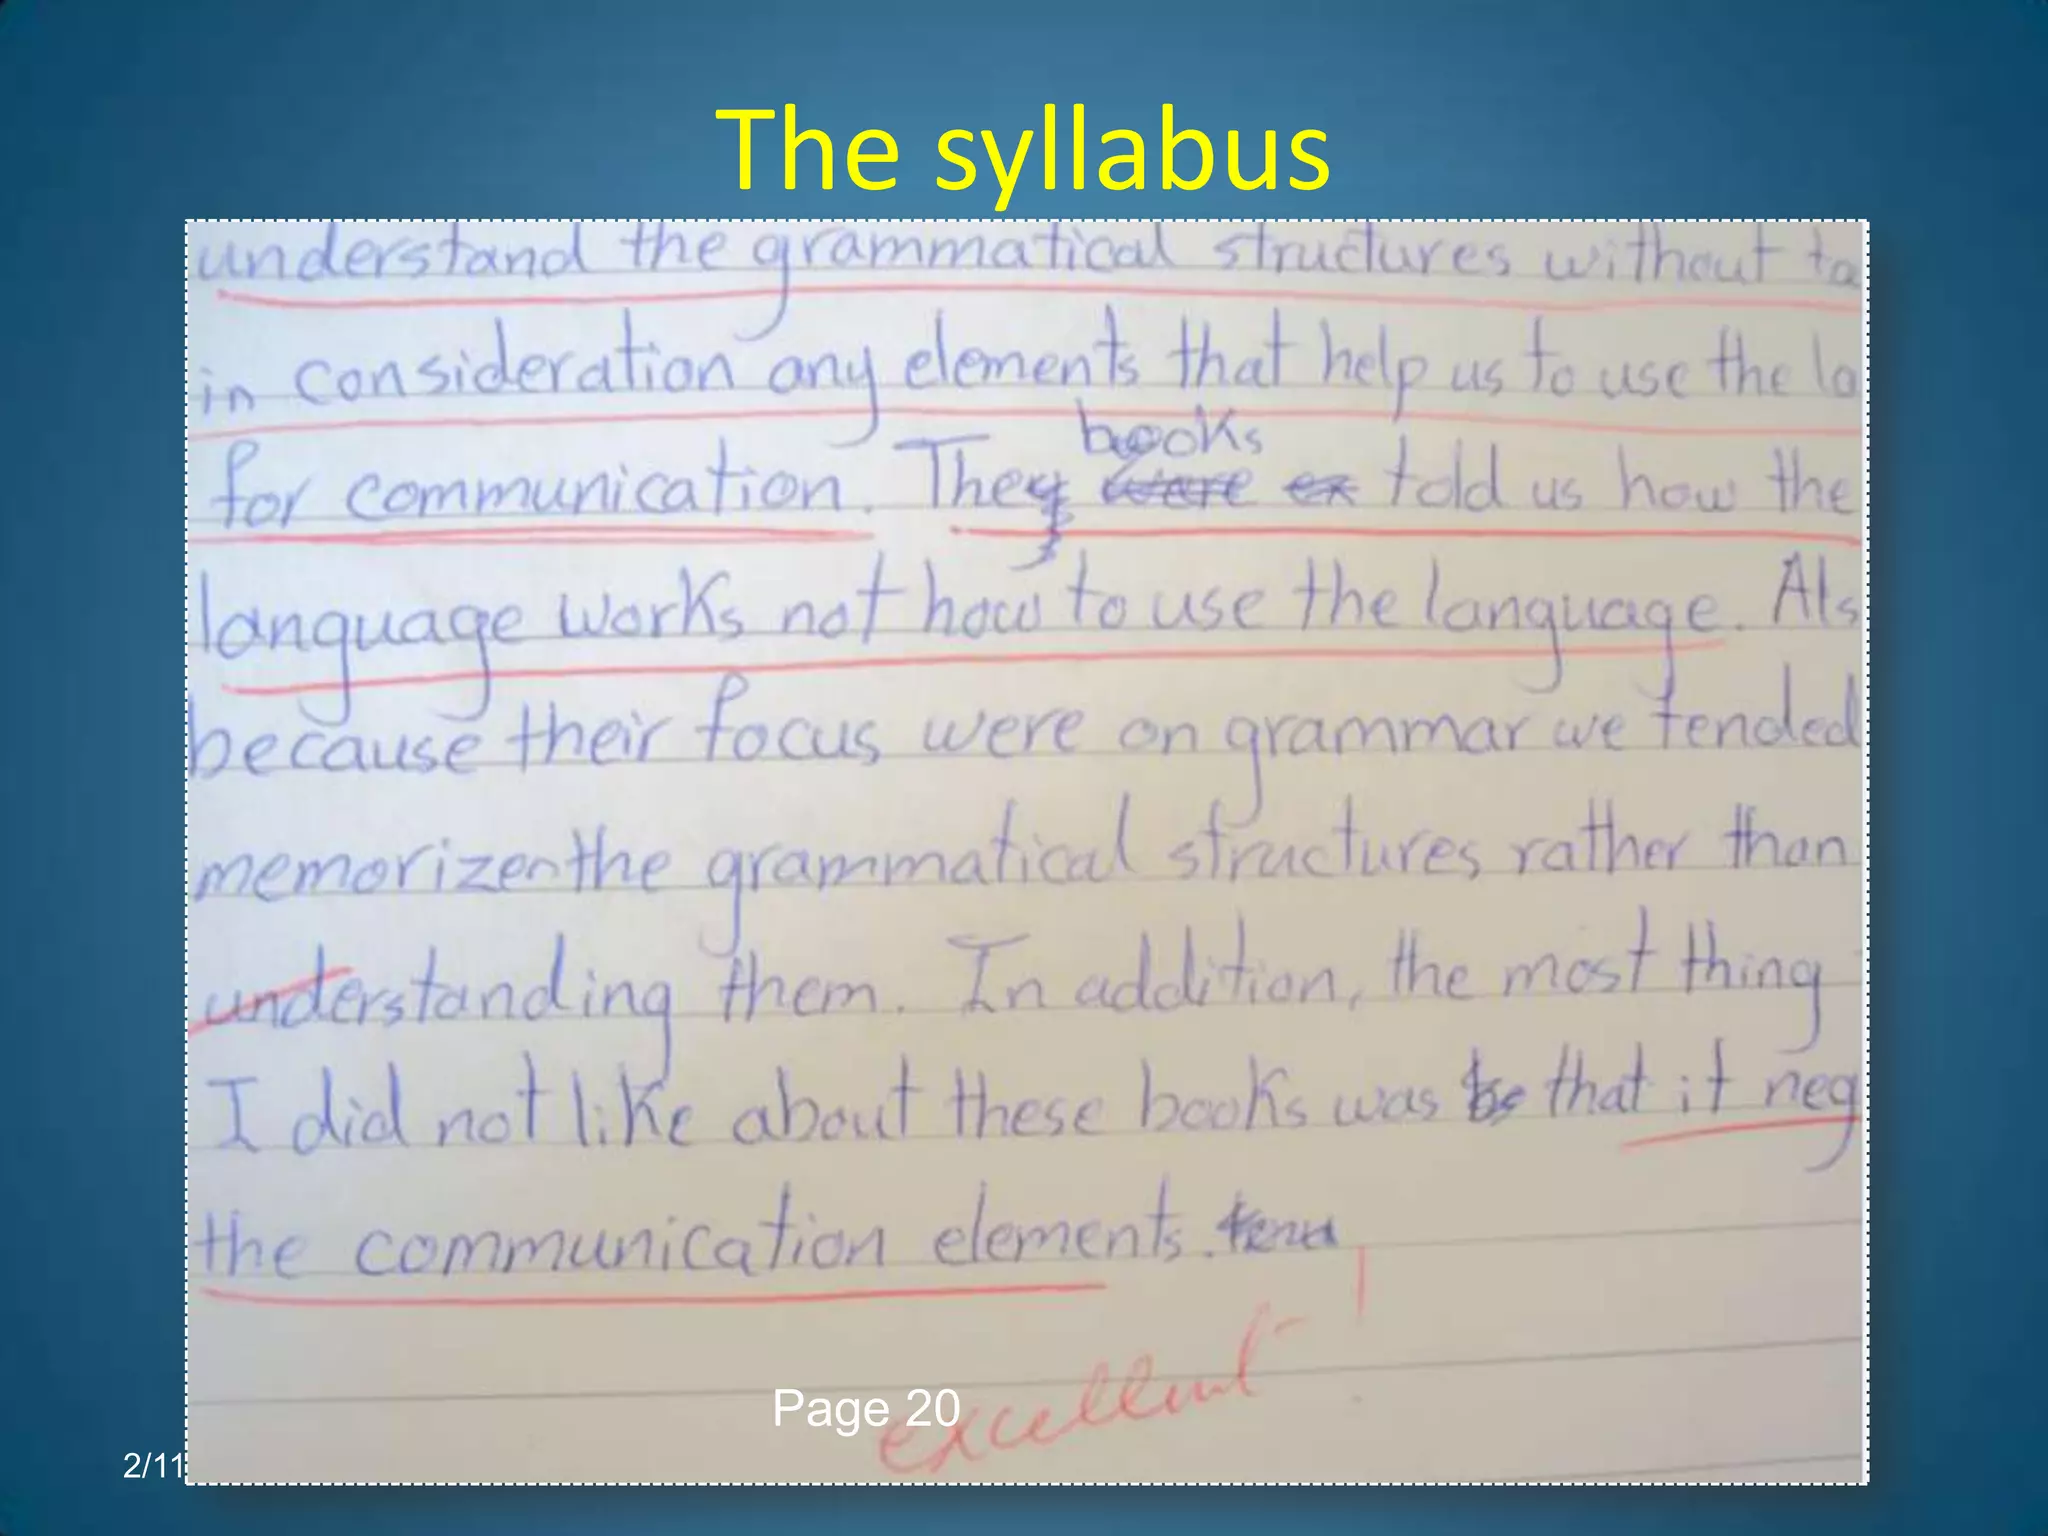 The syllabus
understand the grammatical structures without ta
in consideration any elements that help us to use the la
books
for communication. They were ex told us how the
language works not how to use the language. Als
because their focus were on grammar we tended
memorize the grammatical structures rather than
understanding them. In addition, the most thing
I did not like about these books was that it neg
the communication elements.
excellent!
Page 20
2/11